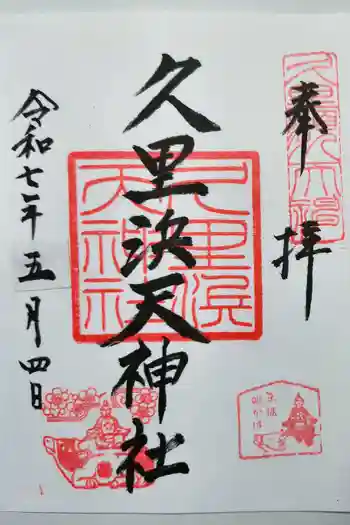 奉拝
久里浜天神社
令和七年五月四日
久里浜天神社